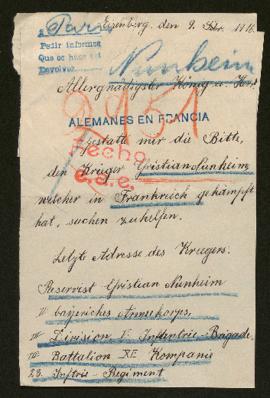 Paris
Eisenberg, den 9. Febr. 1916.
Pedir informes
Que se hace así
Devolver
Nunheim
Allergnädigster König u. Herr
9151
ALEMANES EN FRANCIA
Gestatt mir die Bitte,
den Krüger Christian Nunheim,
welcher in Frankreich gekämpft
hat, suchen zu helfen.
Fecho
Letzt Adresse des Kruegers:
Reservist Christian Nunheim
bayeriches Armeekorps,
Division V. Infantrie-Brigade
Battallion XI Kompanie
23. Inftrie-Regiment